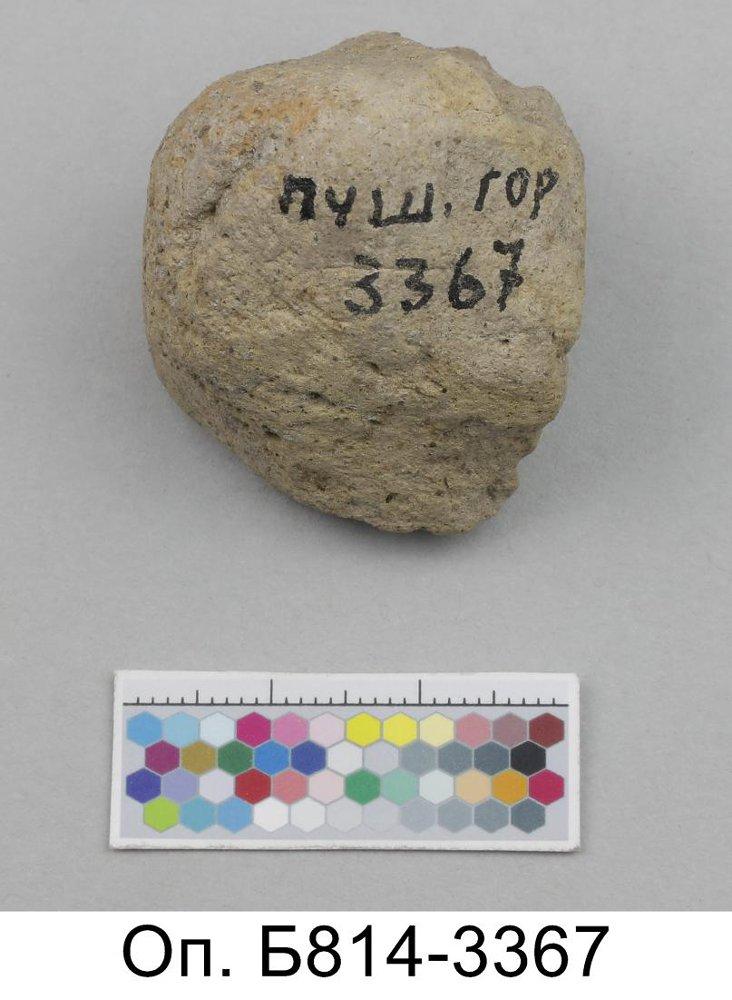 ПУШ. ГОР
3367
Оп. Б814-3367